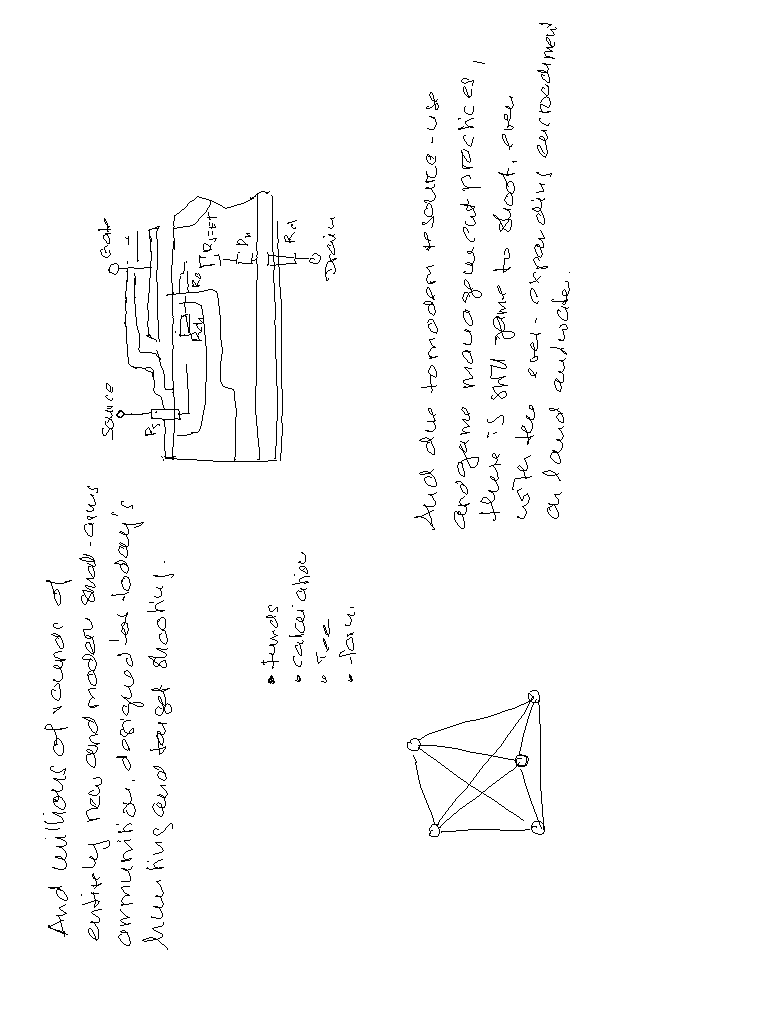 And millions of rounds of
entirely new and modern small-arms
ammunition, designed for today's
hunting and target shooting.
Source
Gate
Rs
Rch
Ra
Rn
Rd
Drain
• funds
• calcination
• Tee
• form.
And due to modern resource-use
and game management practices,
there is still game to shoot, even
with the ever-expanding encroachment
on land and water.